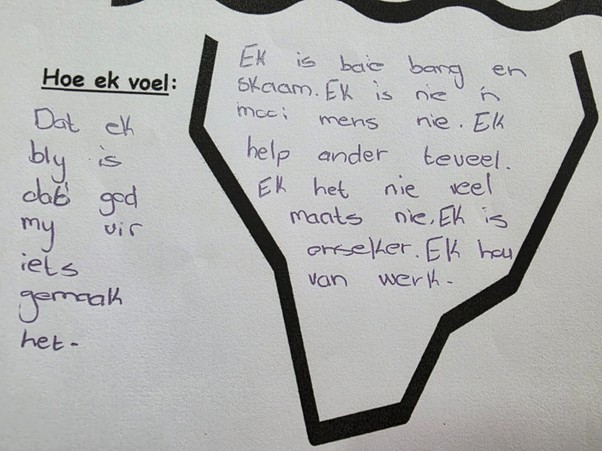 Hoe ek voel:
Dat ek
bly is
dat god
my vir
iets
gemaak
het.
Ek is baie bang en
skaam. Ek is nie 'n
mooi mens nie. Ek
help ander teveel.
Ek het nie veel
maats nie. Ek is
onseker. Ek hou
van werk.